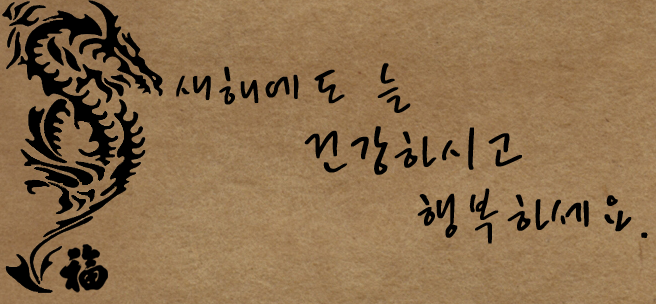 새해에도 늘
건강하시고
행복하세요.
福